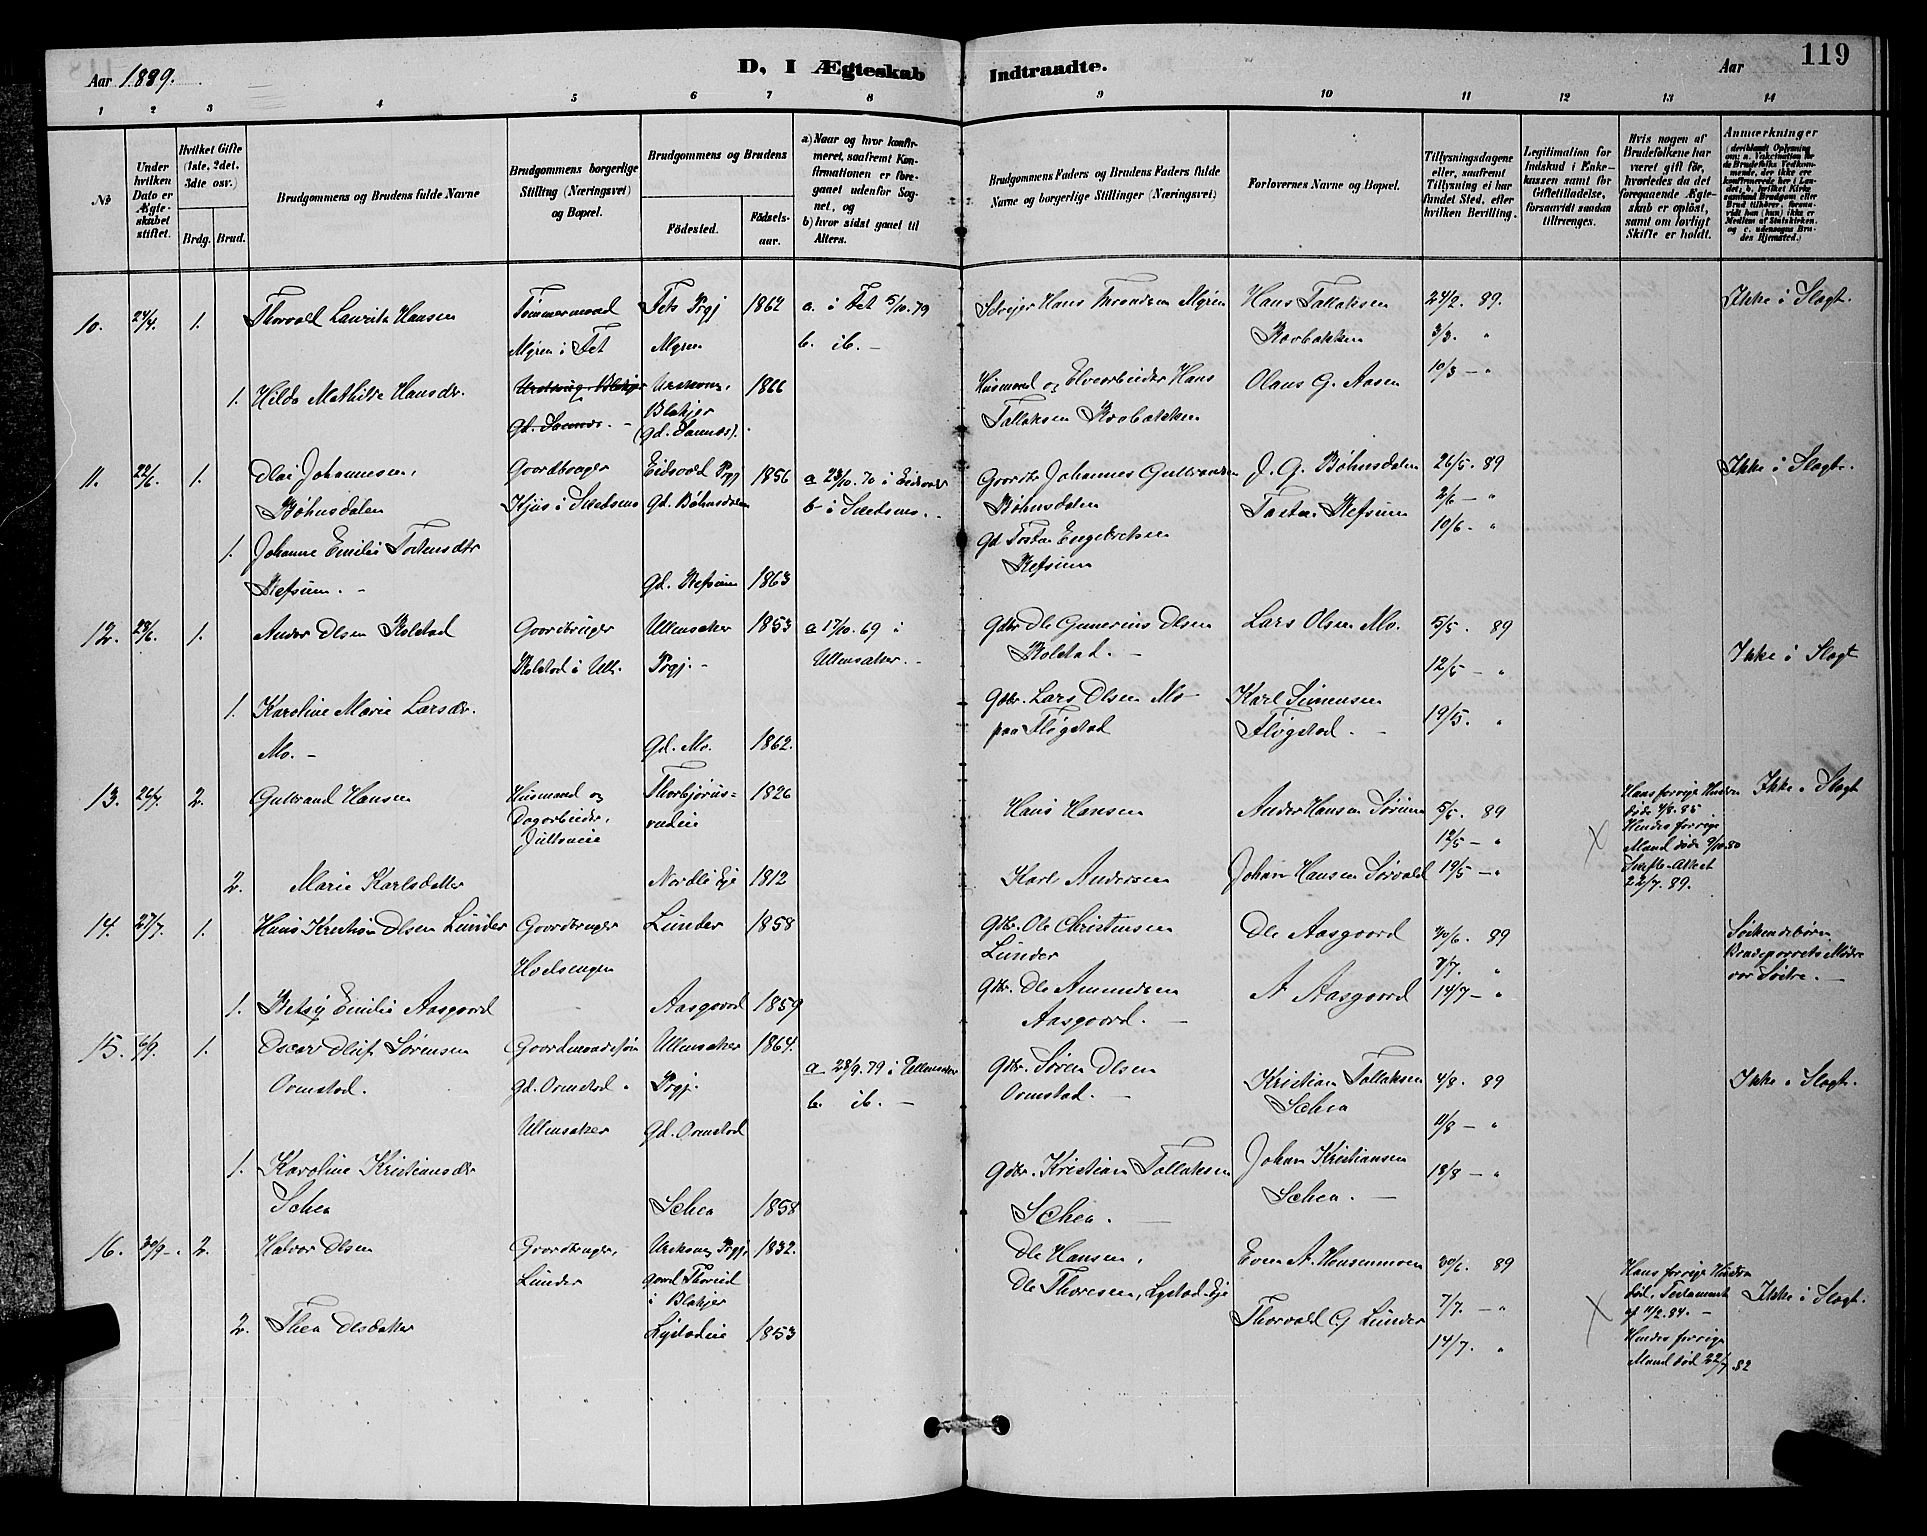 Aar 1889.
D, I Ægteskab Indtraadte.
Aar 119
1 2 3 4 5 6 7 8 9 10 11 12 13 14
No
Under hvilken Dato er Ægteskabet stiftet.
Hvilket Gifte (1ste, 2det, 3dte osv.)
Brdg. Brud.
Brudgommens og Brudens fulde Navne
Brudgommens borgerlige Stilling (Næringsvei) og Bopæl.
Brudgommens og Brudens
Fødested.
Fødselsaar.
a) Naar og hvor konfirmeret, saafremt Konfirmationen er foregaaet udenfor Sognet, og
b) hvor sidst gaaet til Alters.
Brudgommens Faders og Brudens Faders fulde Navne og borgerlige Stillinger (Næringsvei)
Forlovernes Navne og Bopæl.
Tillysningsdagene eller, saafremt Tillysning ei har fundet Sted, efter hvilken Bevilling.
Legitimation for Indskud i Enkekassen samt for Giftetilladelse, forsaavidt saadan tiltrænges.
Hvis nogen af Brudefolkene har været gift før, hvorledes da det foregaaende Ægteskab er opløst, samt om lovligt Skifte er holdt.
Anmærkninger (deriblandt Oplysning om: a. Vakcination for de Brudefolks Vedkommende, der ikke ere konfirmerede her i Landet, b. hvilket Kirkesamfund Brudgom eller Brud tilhører, forsaavidt han (hun) ikke er Medlem af Statskirken, og c. udensogns Brudes Hjemsted.)
10. 24/4. 1. Thorvald Lauritz Hansen
Tømmermand
Myren i Fet
Fets Prgj
Myren
1862
a. i Fet 5/10. 79
b. ib. –
Hans Throndsen Myren
Hans Tallaksen
24/2. 89.
3/3. "
10/3 – "
Ikke i Slægt.
1. Hilda Mathilde Hansdr.
Urskoug,
Blakjer
(gd. Sannes).
1866
Husmand og Elvearbeider Hans
Tallaksen
Olaus G. Aasen
11. 22/6. 1. Olai Johannesen,
Bøhnsdalen
Gaardbruger
Hjus i Skedsmo
Eidsvold Prgj
Gd. Bøhnsdalen
1856
a 23/10. 70 i Eidsvold
b i Skedsmo. –
Johannes Guttormsen
Bøhnsdalen
J. G. Bøhnsdalen
26/5. 89
2/6 – "
10/6. "
Ikke i Slægt.
1. Johanne Emilie Tostensdtr
Refsum. –
Gd. Refsum 1863
Gd Tosten Engebretsen
Refsum
Tosten Refsum
12. 28/6. 1. Anders Olsen Kolstad
Gaardbruger
Kolstad i Ull.
Ullensaker
Prgj. –
1853
a 17/10. 69 i
Ullensaker. –
Gdbr Ole Gunerius Olsen
Kolstad. –
Lars Olsen Mo.
5/5. 89
12/5 – "
19/5. "
Ikke i Slægt
1. Karoline Marie Larsdr.
Mo. –
Gd. Mo. 1862.
Gdbr. Lars Olsen Mo
paa Fløgstad
Karl Simensen
Fløgstad. –
13. 26/7. 2. Guttorm Hansen
Husmand og
Dagarbeider,
Thorbjørns-
rudeie
1826
Hans Hansen
Anders Hansen Sørum
5/5. 89
12/5 – "
19/5 – "
Hans forrige Hustru
døde
Hendes forrige
Mand døde 9/10 80
Skifte-Attest
22/7. 89.
Ikke i Slægt
2. Marie Karlsdatter
Nordli Eje 1812
Karl Andersen
Johan Hansen Sørvald
14. 27/7. 1. Hans Kristian Olsen Lunder
Gaardbruger
Hvelsengen
Lunder 1858
Gdbr. Ole Christensen
Lunder
Ole Aasgaard
30/6. 89
7/7. "
14/7 – "
Søskendebørn
Brudeparrets Mødre
var Søstre. –
1. Betsy Emilie Aasgaard
Aasgaard 1859
Gdbr. Ole Amundsen
Aasgaard. –
A Aasgaard
15. 6/9. 1. Oscar Oluf Sørensen
Ormstad.
Gaardmandssøn
gd. Ormstad.
Ullensaker
Ullensaker
Prgj.
gd. Ormstad
1864.
a 28/9. 79 i Ullensaker
b. ib. –
Gdbr. Søren Olsen
Ormstad. –
Kristian Tollaksen
Schea
4/8. 89
11/8 – "
18/8 – "
Ikke i Slægt.
1. Karoline Kristiansdr
Schea
Schea 1858
Gdbr. Kristian Tollaksen
Schea. –
Johan Kristiansen
Schea. –
16. 20/9 –. 2. Halvor Olsen
Gaardbruger,
Lunder
Urskoug Prgj,
i Blakjer
1832.
Ole Hansen,
Even A. Hansenmoen
30/6. 89
7/7. – "
14/7. "
Hans forrige Hustru
død. Testament
af 11/2. 84. –
Hendes forrige
Mand død 22/7. 82
Ikke i Slægt.
2. Thea Olsdatter
Lystadeie 1853
Ole Thoresen, Lystad-Eje
Thorvald G Lunder